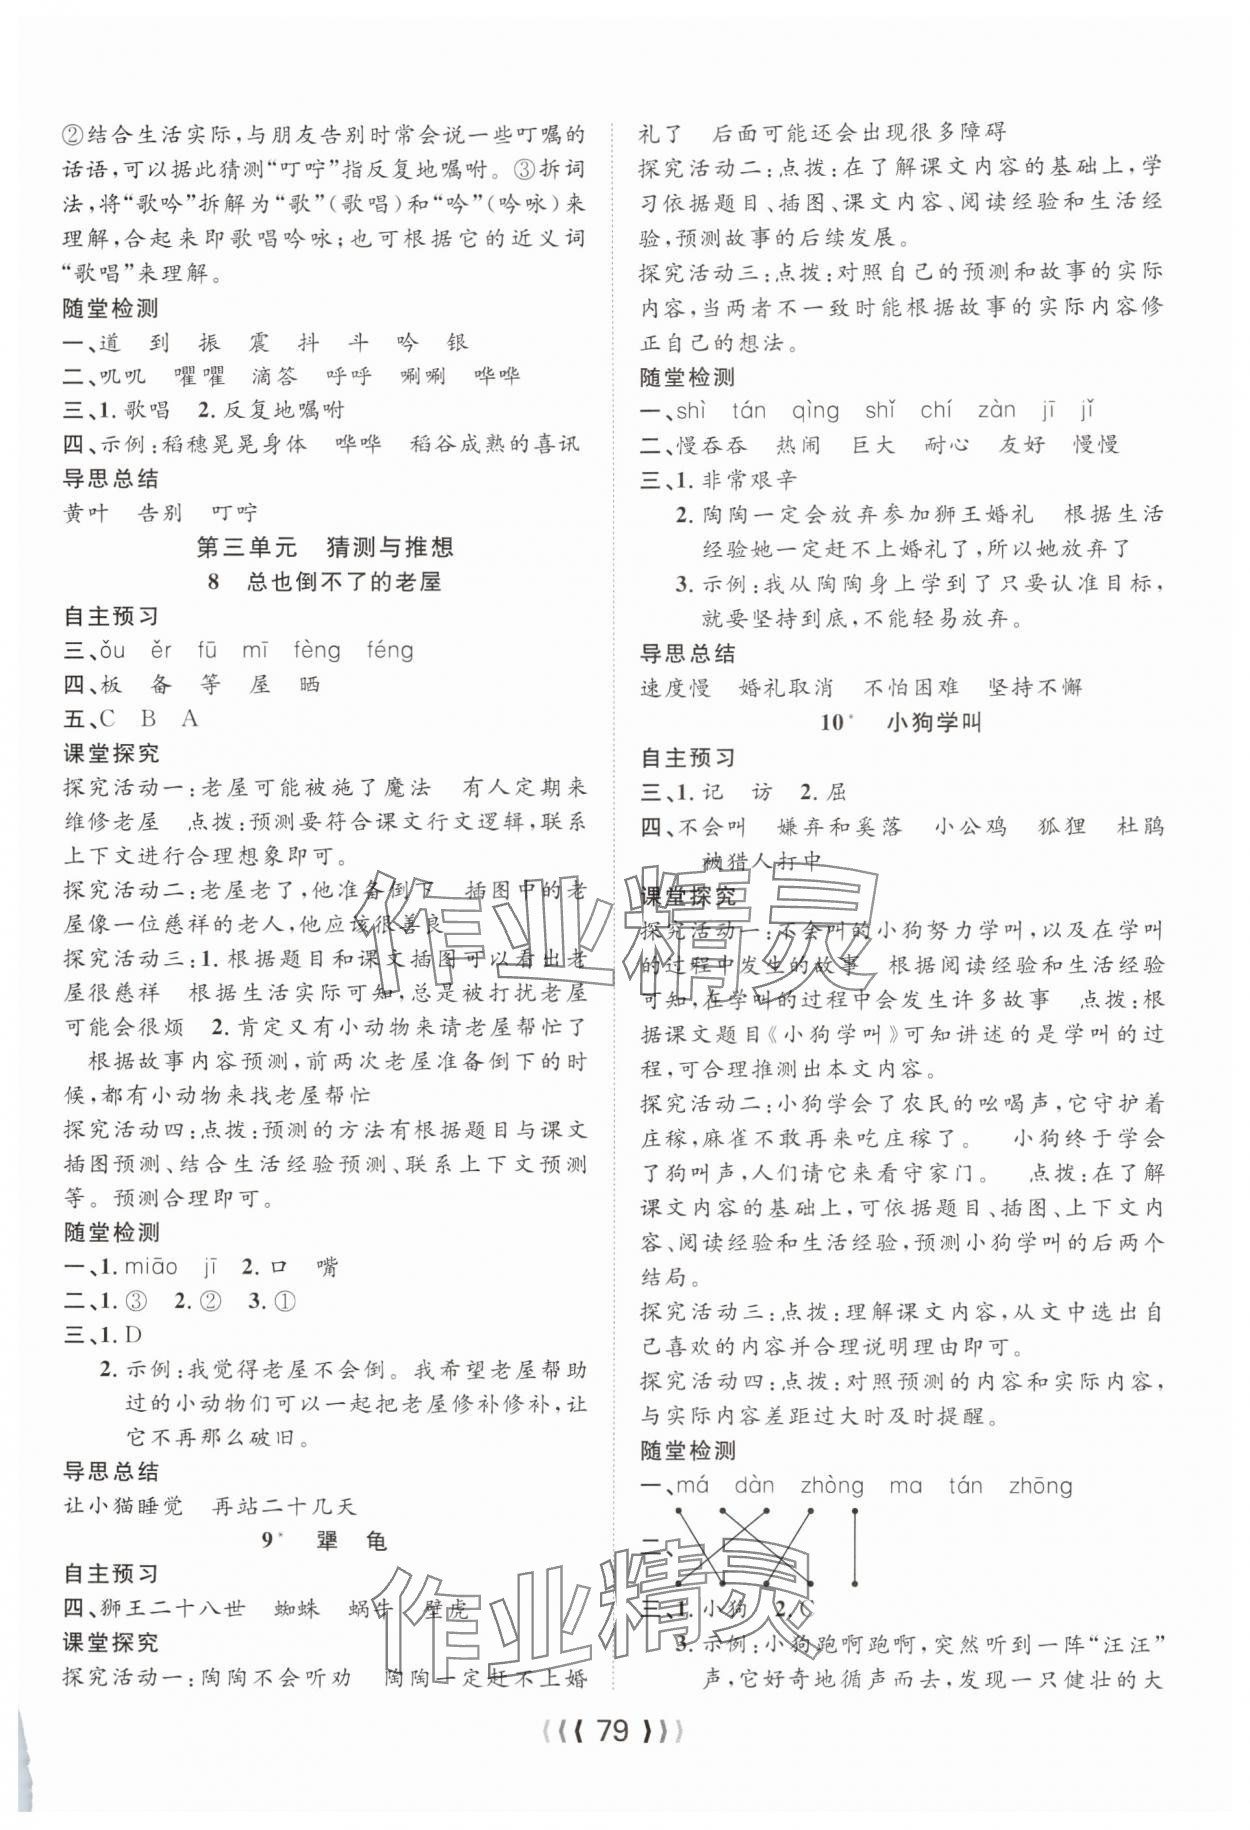 ②结合生活实际,与朋友告别时常会说一些叮嘱的
话语,可以据此猜测“叮咛”指反复地嘱咐。③拆词
法,将“歌吟”拆解为“歌”(歌唱)和“吟”(吟咏)来
理解,合起来即歌唱吟咏;也可根据它的近义词
“歌唱”来理解。
随堂检测
一、道　到　振　震　抖　斗　吟　银
二、叽叽　嚁嚁　滴答　呼呼　唰唰　哗哗
三、1. 歌唱　2. 反复地嘱咐
四、示例:稻穗晃晃身体　哗哗　稻谷成熟的喜讯
导思总结
黄叶　告别　叮咛
第三单元　猜测与推想
8　总也倒不了的老屋
自主预习
三、ǒu　ěr　fū　mī　fèng　féng
四、板　备　等　屋　晒
五、C　B　A
课堂探究
探究活动一:老屋可能被施了魔法　有人定期来
维修老屋　点拨:预测要符合课文行文逻辑,联系
上下文进行合理想象即可。
探究活动二:老屋老了,他准备倒下　插图中的老
屋像一位慈祥的老人,他应该很善良
探究活动三:1. 根据题目和课文插图可以看出老
屋很慈祥　根据生活实际可知,总是被打扰老屋
可能会很烦　2. 肯定又有小动物来请老屋帮忙了
　根据故事内容预测,前两次老屋准备倒下的时
候,都有小动物来找老屋帮忙
探究活动四:点拨:预测的方法有根据题目与课文
插图预测、结合生活经验预测、联系上下文预测
等。预测合理即可。
随堂检测
一、1. miāo　jī　2. 口　嘴
二、1. ③　2. ②　3. ①
三、1. D
2. 示例:我觉得老屋不会倒。我希望老屋帮助
过的小动物们可以一起把老屋修补修补,让
它不再那么破旧。
导思总结
让小猫睡觉　再站二十几天
9*　犟　龟
自主预习
四、狮王二十八世　蜘蛛　蜗牛　壁虎
课堂探究
探究活动一:陶陶不会听劝　陶陶一定赶不上婚
礼了　后面可能还会出现很多障碍
探究活动二:点拨:在了解课文内容的基础上,学
习依据题目、插图、课文内容、阅读经验和生活经
验,预测故事的后续发展。
探究活动三:点拨:对照自己的预测和故事的实际
内容,当两者不一致时能根据故事的实际内容修
正自己的想法。
随堂检测
一、shì　tán　qìng　shǐ　chí　zàn　jī　jǐ
二、慢吞吞　热闹　巨大　耐心　友好　慢慢
三、1. 非常艰辛
2. 陶陶一定会放弃参加狮王婚礼　根据生活
经验她一定赶不上婚礼了,所以她放弃了
3. 示例:我从陶陶身上学到了只要认准目标,
就要坚持到底,不能轻易放弃。
导思总结
速度慢　婚礼取消　不怕困难　坚持不懈
10*　小狗学叫
自主预习
三、1. 记　访　2. 屈
四、不会叫　嫌弃和奚落　小公鸡　狐狸　杜鹃
被猎人打中
课堂探究
探究活动一:不会叫的小狗努力学叫,以及在学叫
的过程中发生的故事　根据阅读经验和生活经验
可知,在学叫的过程中会发生许多故事　点拨:根
据课文题目《小狗学叫》可知讲述的是学叫的过
程,可合理推测出本文内容。
探究活动二:小狗学会了农民的吆喝声,它守护着
庄稼,麻雀不敢再来吃庄稼了。　小狗终于学会
了狗叫声,人们请它来看守家门。　点拨:在了解
课文内容的基础上,可依据题目、插图、上下文内
容、阅读经验和生活经验,预测小狗学叫的后两个
结局。
探究活动三:点拨:理解课文内容,从文中选出自
己喜欢的内容并合理说明理由即可。
探究活动四:点拨:对照预测的内容和实际内容,
与实际内容差距过大时及时提醒。
随堂检测
一、má　dàn　zhòng　ma　tán　zhōng
二、
三、1. 小狗　2. C
3. 示例:小狗跑啊跑啊,突然听到一阵“汪汪”
声,它好奇地循声而去,发现一只健壮的大
79
作业精灵
作业精灵